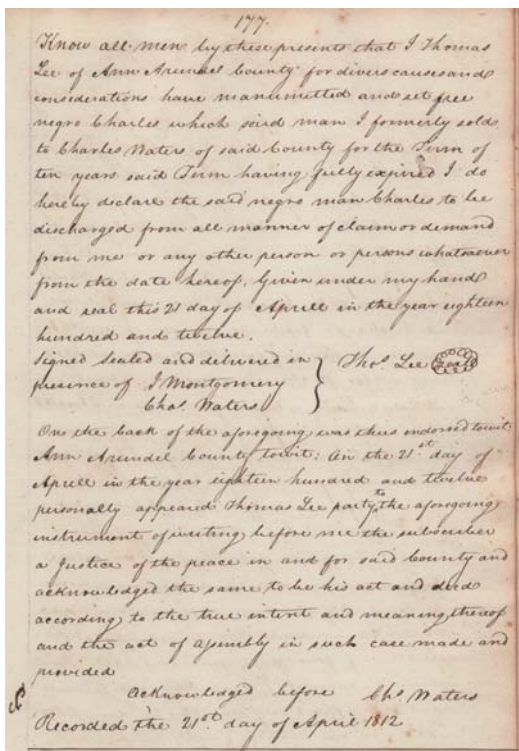 177.
Know all men by these presents that I Thomas
Lee of Ann Arundel County for divers causes and
considerations have manumitted and set free
negro Charles which said man I formerly sold
to Charles Waters of said County for the Term of
ten years said Term having fully expired I do
hereby declare the said negro man Charles to be
discharged from all manner of claim or demand
from me or any other person or persons whatsoever
from the date hereof, Given under my hand
and seal this 21 day of Aprill in the year eighteen
hundred and twelve.
Signed Sealed and delivered in } Thos. Lee Seal
presence of J Montgomery
Chas. Waters
On the back of the aforegoing was thus endorsed towit
Ann Arundel County towit: On the 21st day of
Aprill in the year eighteen hundred and twelve
personally appeared Thomas Lee party to the aforegoing
instrument of writing before me the subscriber
a Justice of the peace in and for said County and
acknowledged the same to be his act and deed
according to the true intent and meaning thereof
and the act of assembly in such case made and
provided
Acknowledged before Chs Waters
Recorded the 21st. day of April 1812